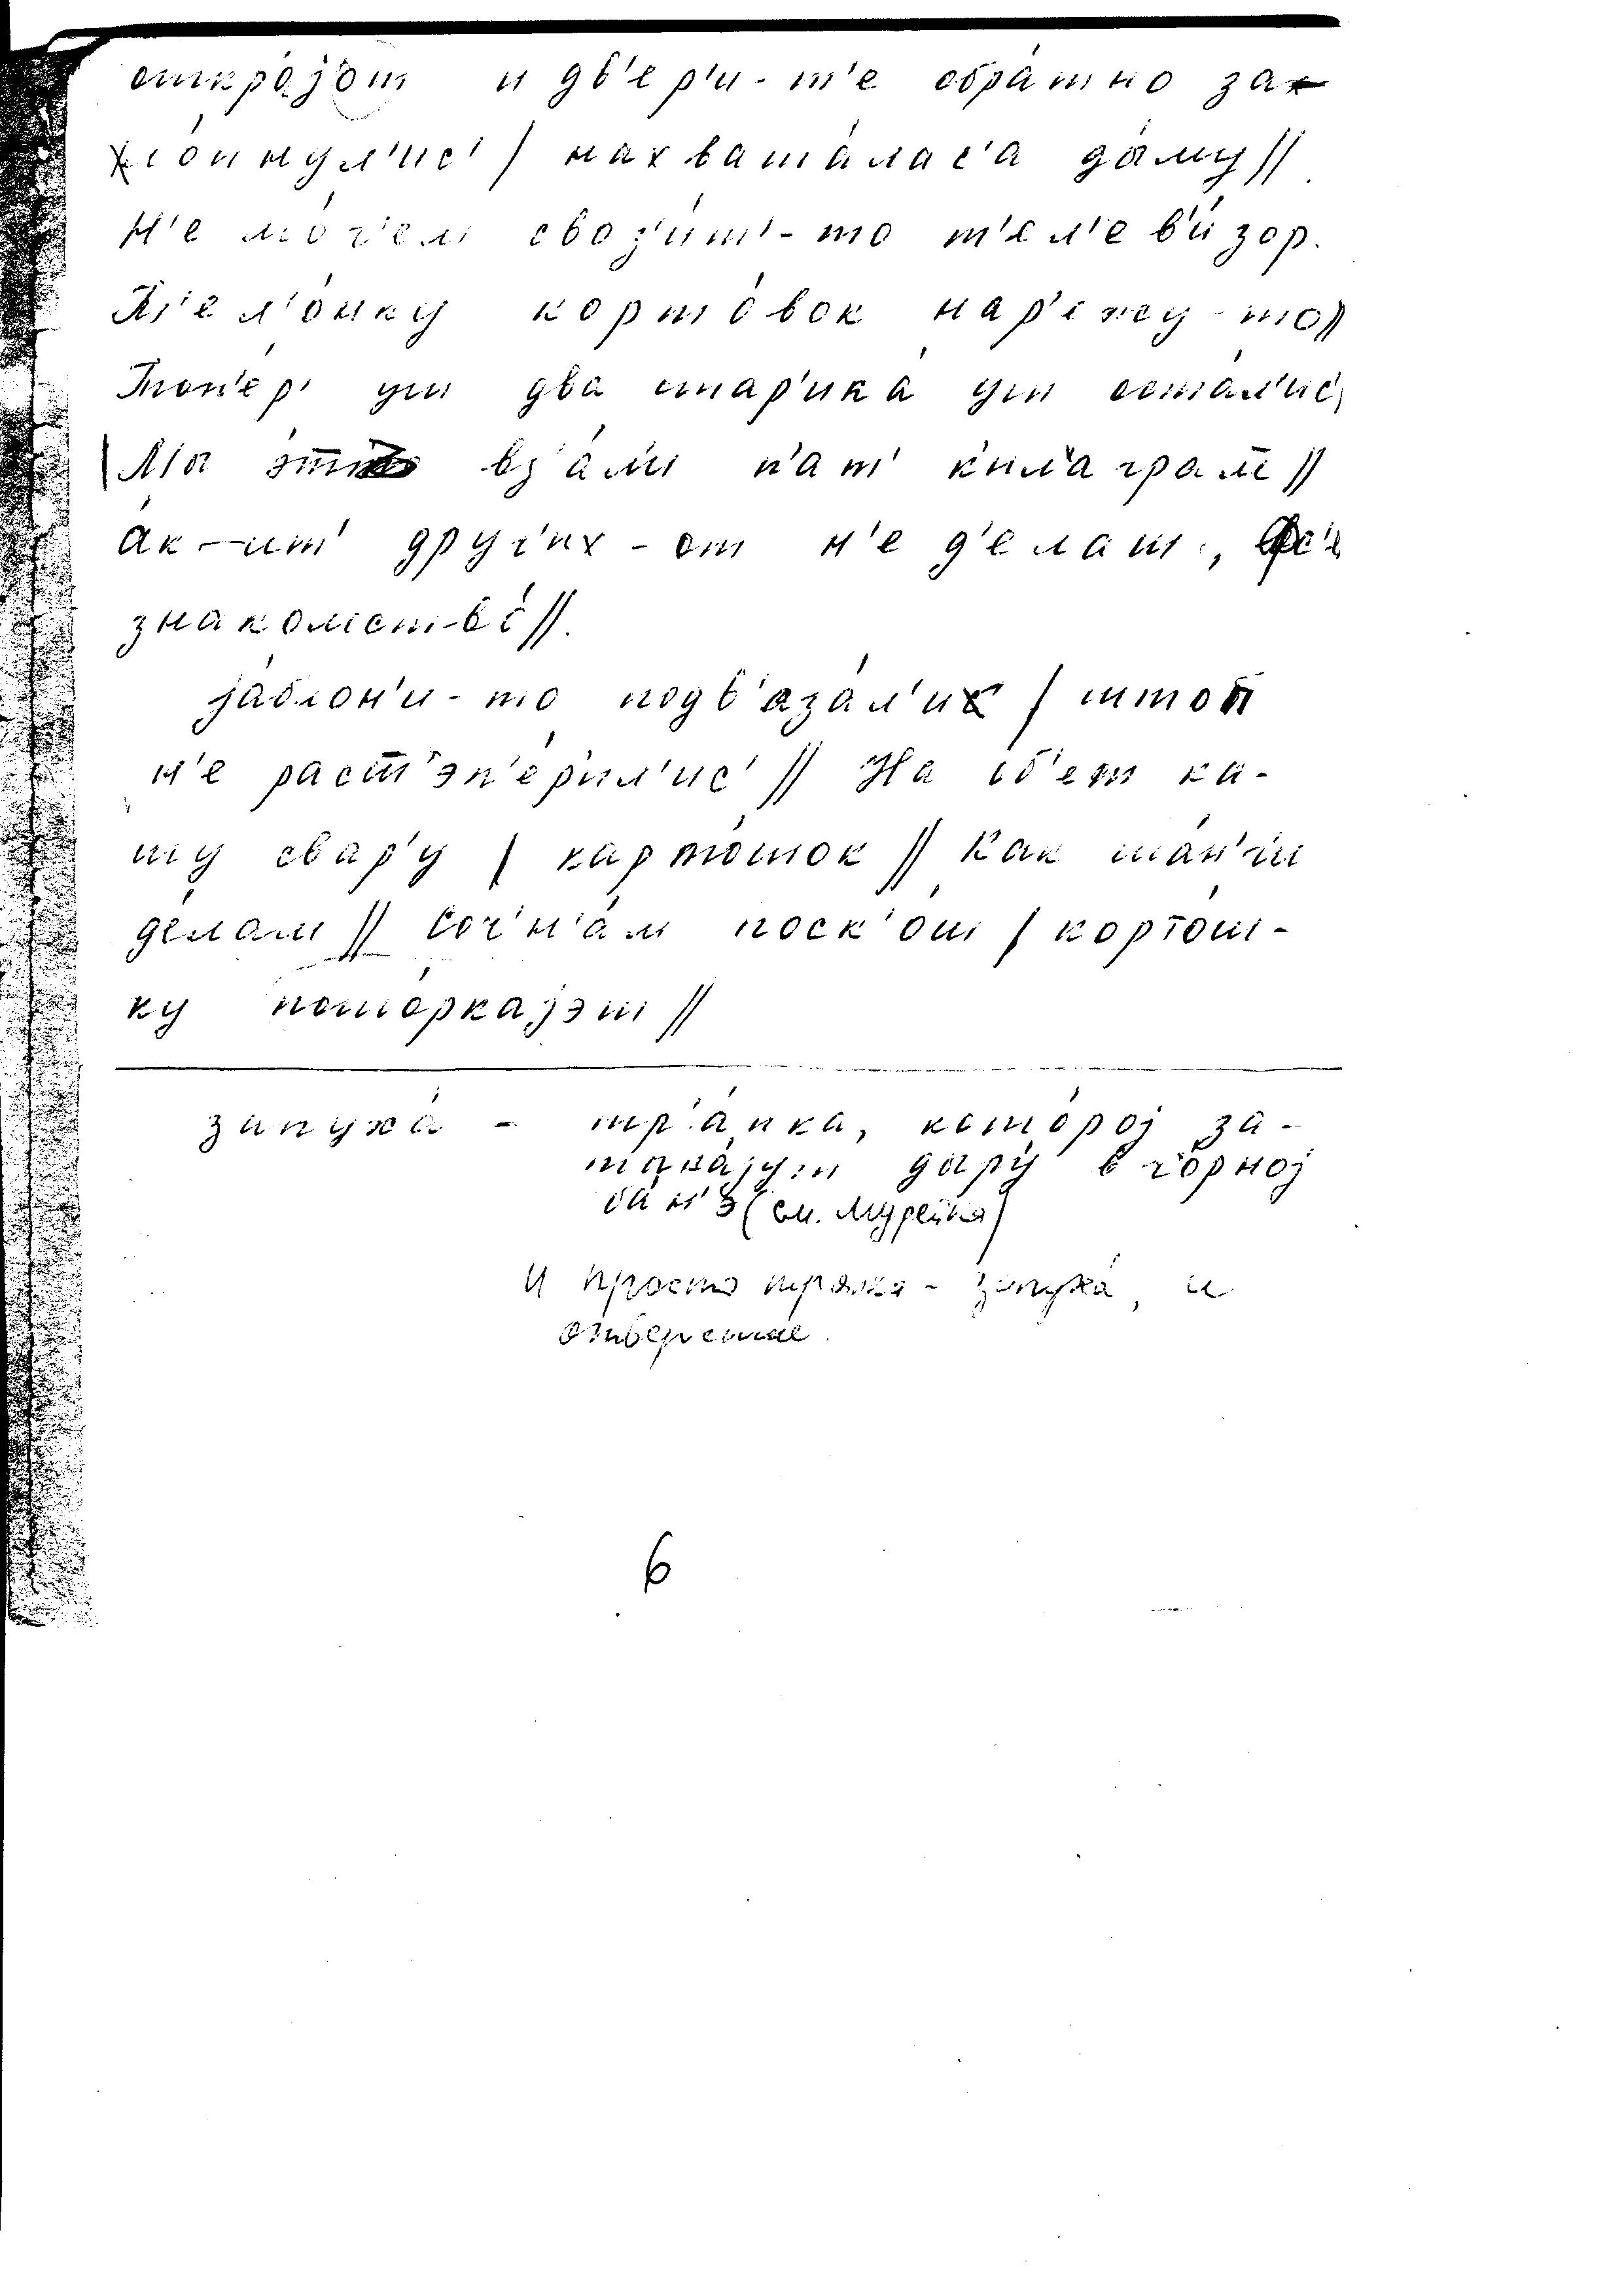 открајо́т и дв'ер'и-т'е обра́тно за
хло́пнул'ис' / нахвата́лас'а ды́му //
Н'е мо́г'ем своз'и́т'-то т'ел'ев'и́зор.
П'ел'о́нку корто́вок нар'е́жу-то //
Топ'е́р' уш два стар'ика́ уш оста́л'ис'
Мы вз'а́л'и п'ат' к'илагра́м //
а́к-ит' друг'их-от н'е д'е́лат', фс'е
знакомство́ //.
ја́блон'и-то подв'аза́л'и / штоп
н'е раст'эп'е́рил'ис' // На об'ет ка-
шу свар'у́ / карто́шок // Как ша́н'ги
де́лам // Соч'н'а́м поск'о́ш / кортош-
ку пошо́ркајэш //
запуха́ - тр'а́пка, кото́рој за-
тыка́јут дыру́ в чо́рној
ба́н'э (см. Мурейка)
И просто тряпка - запуха́, и
отверстие.
6